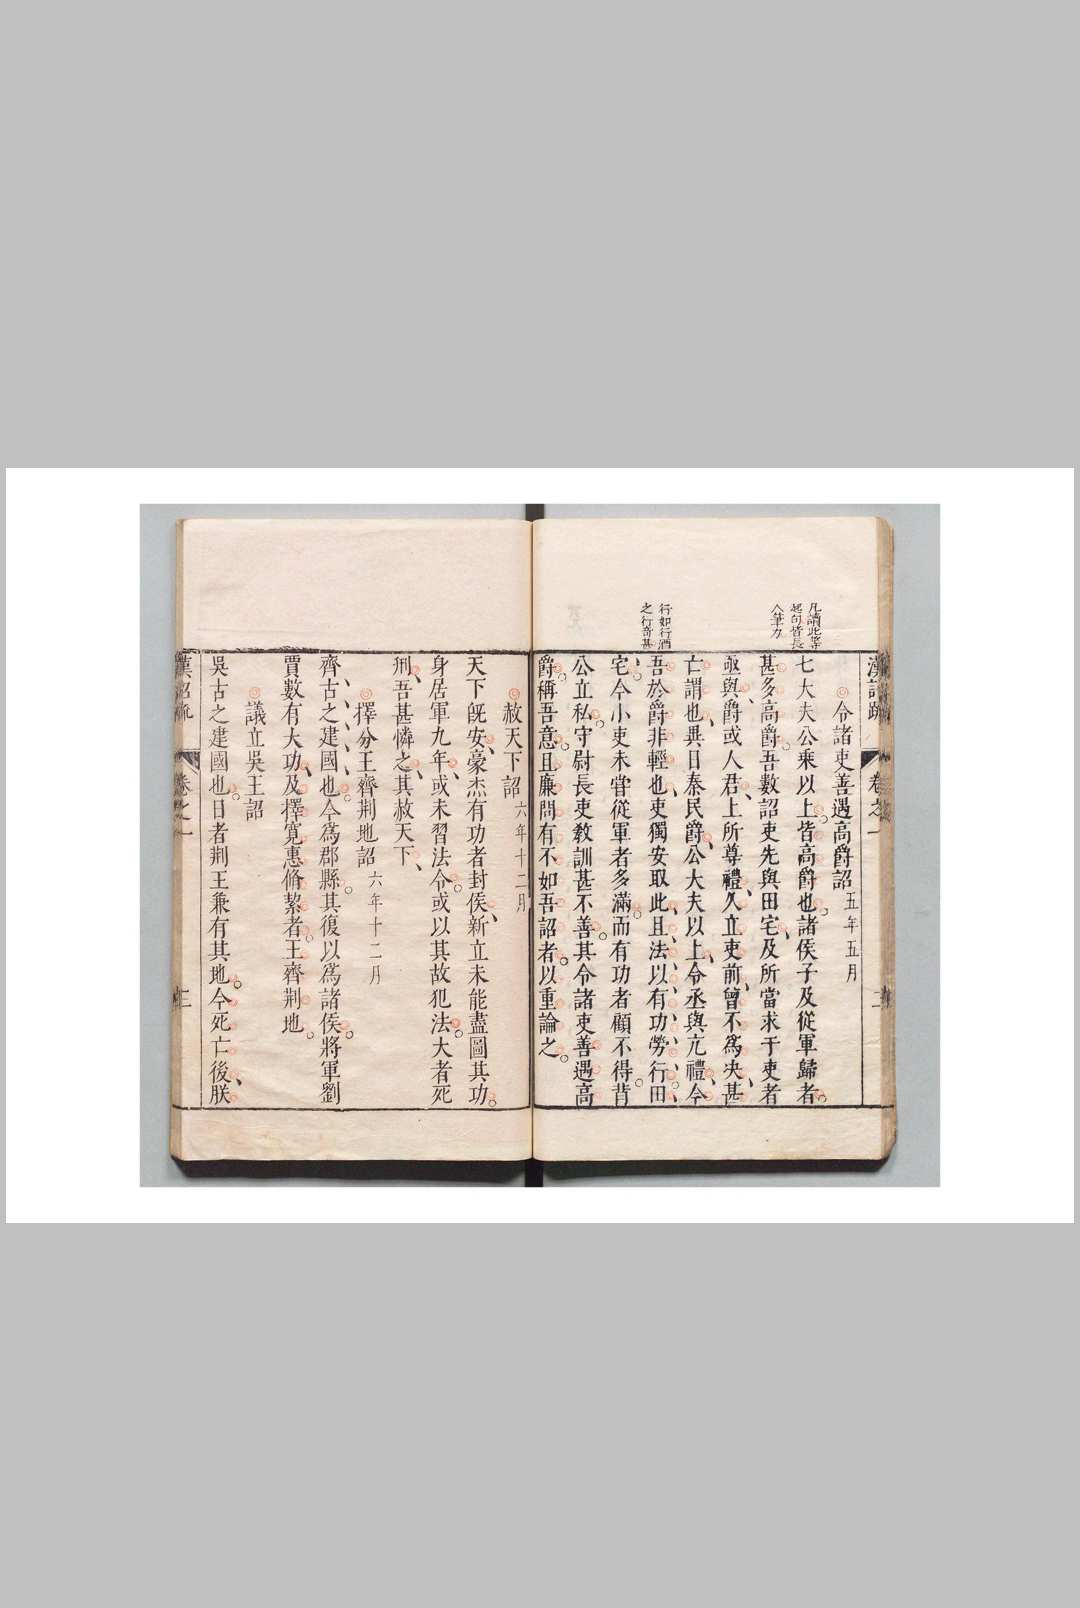 凡讀此等
起句皆長
人筆力
行如行酒
之行奇甚
漢詔疏 卷之一
令諸吏善遇高爵詔 五年五月
七大夫公乘以上皆高爵也諸侯子及從軍歸者
甚多高爵吾數詔吏先與田宅及所當求于吏者
亟與爵或人君上所尊禮久立吏前曾不爲決甚
亡謂也異日秦民爵公大夫以上令丞與亢禮今
吾於爵非輕也吏獨安取此且法以有功勞行田
宅今小吏未嘗從軍者多滿而有功者顧不得背
公立私守尉長吏敎訓甚不善其令諸吏善遇高
爵稱吾意且廉問有不如吾詔者以重論之
赦天下詔 六年十二月
天下旣安豪杰有功者封侯新立未能盡圖其功
身居軍九年或未習法令或以其故犯法大者死
刑吾甚憐之其赦天下
擇分王齊荆地詔 六年十二月
齊古之建國也今爲郡縣其復以爲諸侯將軍劉
賈數有大功及擇寬惠脩絜者王齊荆地
議立吳王詔
吳古之建國也日者荆王兼有其地今死亡後朕
漢詔疏 卷之一 三